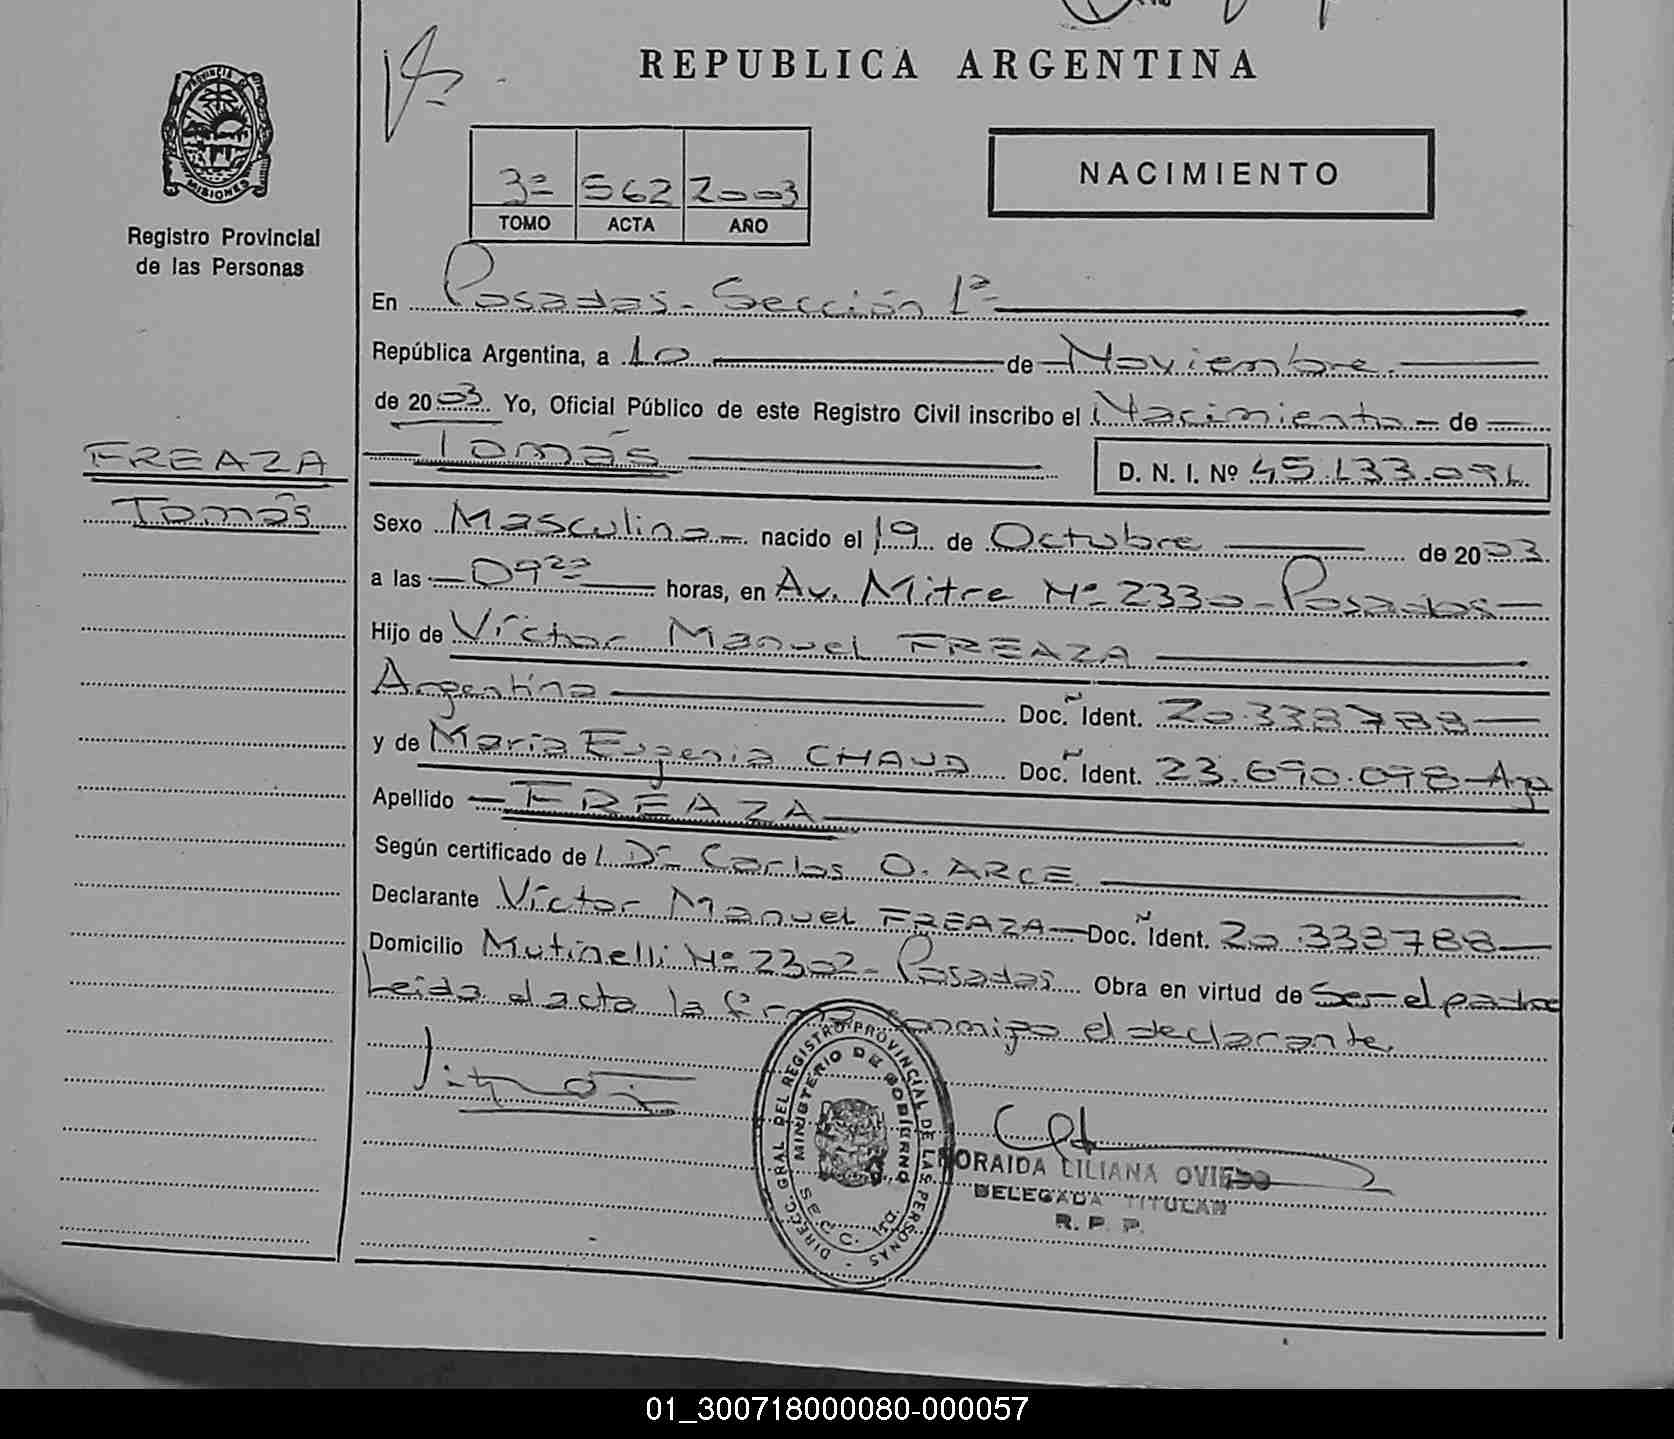 REPUBLICA ARGENTINA
PROVINCIA DE
MISIONES
Registro Provincial
de las Personas
3º 562 2003
TOMO ACTA AÑO
NACIMIENTO
En Posadas - Sección 1º
República Argentina, a 10 de Noviembre
de 2003 Yo, Oficial Público de este Registro Civil inscribo el Nacimiento de
FREAZA
Tomás
Tomás D. N. I. Nº 45.133.091
Sexo Masculino nacido el 19 de Octubre de 2003
a las 09 horas, en Av. Mitre Nº 2330 - Posadas
Hijo de Víctor Manuel FREAZA
Argentina Doc. Ñ Ident. 20.338788
y de María Eugenia Doc. Ñ Ident. 23.690.098-Arg
Apellido FREAZA
Según certificado de l Dr Carlos O. ARCE
Declarante Víctor Manuel FREAZA Doc. Ñ Ident. 20.338788
Domicilio Mutinelli Nº 2302 - Posadas Obra en virtud de Ser el padre
Leída el acta la conmigo el declarante.
DIRECC. GRAL DEL REGISTRO PROVINCIAL DE LAS PERSONAS
MINISTERIO DE GOBIERNO
LILIANA OVIEDO
DELEGADA TITULAR
R. P. P.
01_300718000080-000057